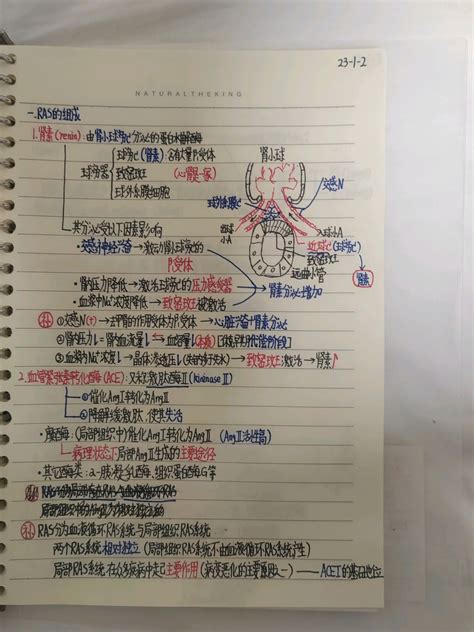 23-1-2
NATURALTHEKING
一.RAS的组成
1.肾素(renin):由肾小球旁c分泌的蛋白水解酶
球旁c(肾素):含有大量β受体
球旁器 致密斑 (心髁一家)
球外系膜细胞
肾小球
交感N
球外系膜c
出球小A
入球小A
近球c(球旁c)
致密斑
远曲小管
肾素
其分泌受以下因素影响
·交感神经兴奋→激活肾小球旁c的
β受体
·肾内压力降低→激活球旁c的压力感受器
·血浆中Na⁺浓度降低→致密斑被激活
肾素分泌增加
补 ①交感N(+)→主肾的作用受体为β受体→心脏兴奋+肾素分泌
②肾内压力↓=肾内血流量↓
③血液内Na⁺浓度↓→晶体渗透压↓→致密斑激活→肾素↑
2.血管紧张素转化酶(ACE):又称激肽酶Ⅱ(kininaseⅡ)
①催化AngⅠ转化为AngⅡ
②降解缓激肽,使其失活
·糜酶:(局部组织中)催化AngⅠ转化为AngⅡ
病理状态下局部AngⅡ生成的主要途径
·其它酶类:α-胰凝乳酶、组织蛋白酶G等
补 RAS分为血液循环RAS系统与局部组织RAS系统
两个RAS系统相对独立(局部RAS系统不由血液循环RAS系统产生)
局部RAS系统在众多疾病中起主要作用(病变恶化的主要原因之一)——ACEI的基石地位